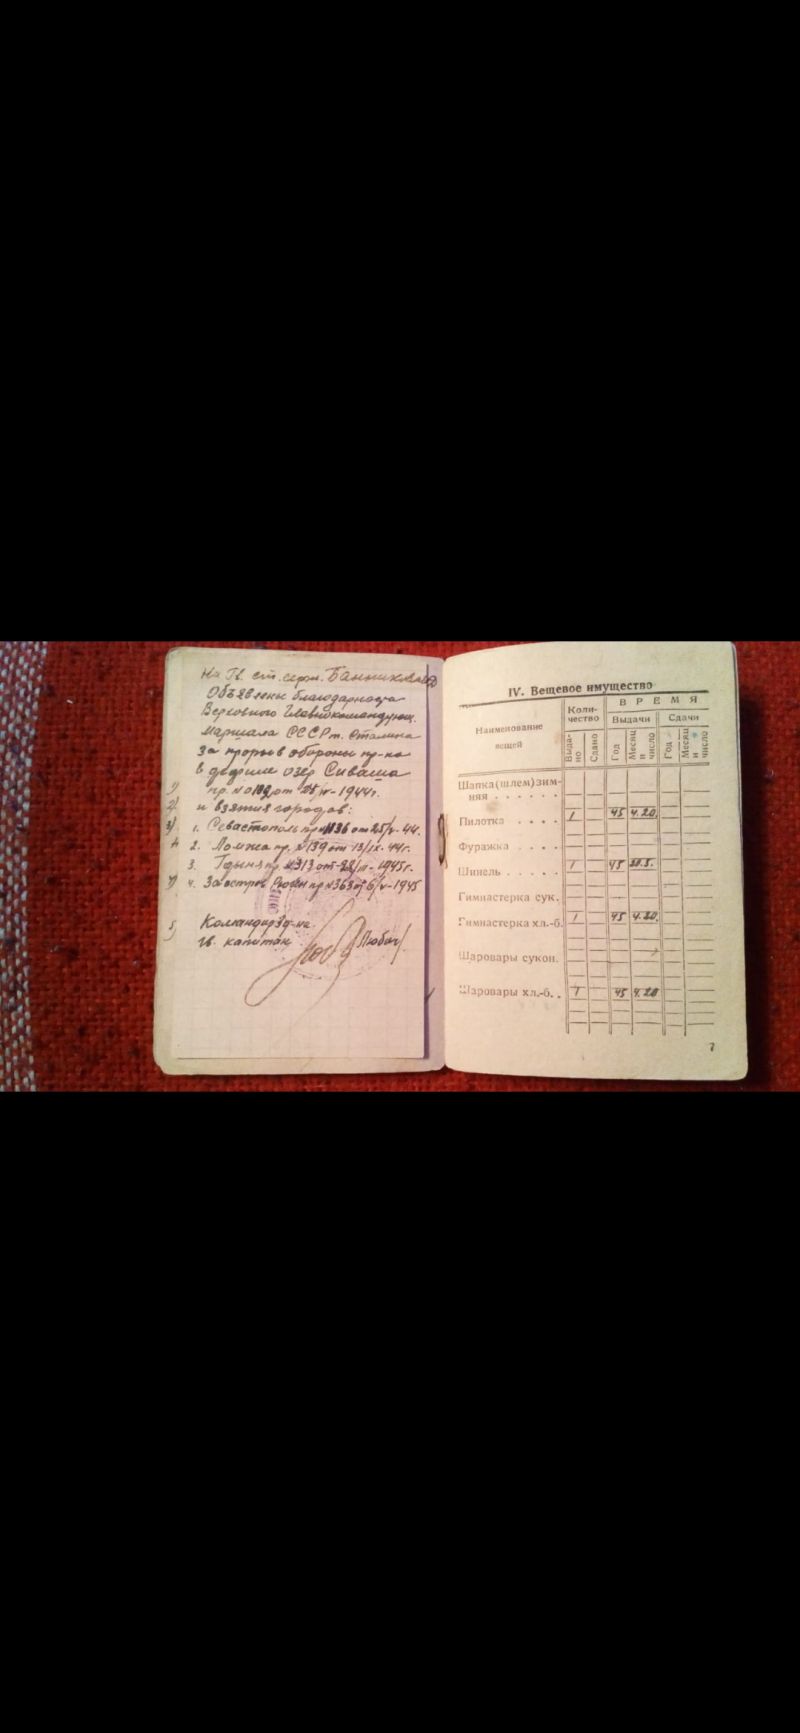 На Гв. ст. серж. Банникова
Объявлены благодарности
Верховного Главнокомандующ.
Маршала СССР т. Сталина
за прорыв обороны пр-ка
в дефиле озер Сиваша
пр. № от 25/IV-1944г.
и взятия городов:
1. Севастополь пр. №136 от 25/V-44.
2. Ломжа пр. №139 от 13/IX-44г.
3. Гдыня пр. №313 от 28/III-1945г.
4. За остров Рюген пр №363 от 6/V-1945
Командир
гв. капитан Любич
IV. Вещевое имущество
Наименование вещей
Количество
ВРЕМЯ
Выдачи
Сдачи
Выдано
Сдано
Год
Месяц и число
Год
Месяц и число
Шапка (шлем) зимняя . . . . . .
Пилотка . . . . 1 45 4.20.
Фуражка . . . .
Шинель . . . . . 1 45
Гимнастерка сук.
Гимнастерка хл.-б. 1 45 4.20.
Шаровары сукон.
Шаровары хл.-б. . 1 45 4.20
7